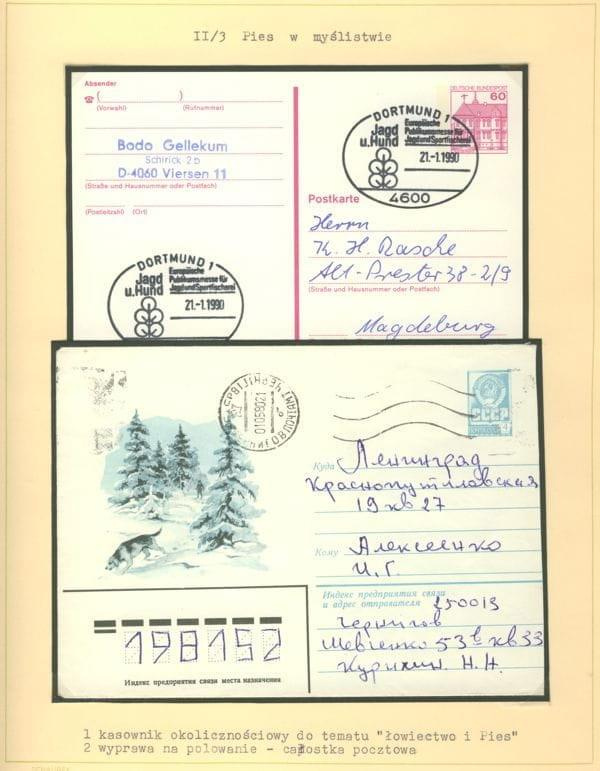 II/3 Pies w myślistwie
Absender
(Vorwahl) (Rufnummer)
Bodo Gellekum
Schirick 25
D-4060 Viersen 11
(Straße und Hausnummer oder Postfach)
(Postleitzahl) (Ort)
DORTMUND 1
Jagd
u. Hund
Europäische
Publikumsmesse für
Jagd und Sportfischerei
21.-1.1990
DEUTSCHE BUNDESPOST
60
DORTMUND 1
Jagd
u. Hund
Europäische
Publikumsmesse für
Jagd und Sportfischerei
21.-1.1990
4600
Postkarte
Herrn
K. H. Rasche
Alt-Prester 38-2/9
(Straße und Hausnummer oder Postfach)
Magdeburg
СССР
4
Куда Ленинград
Краснопутиловская
19 кв 27
Кому Алексеенко
И. Г.
Индекс предприятия связи
и адрес отправителя 250013
Чернигов
Шевченко 53в кв 33
Курихин Н. Н.
198152
Индекс предприятия связи места назначения
1 kasownik okolicznościowy do tematu "łowiectwo i Pies"
2 wyprawa na polowanie - całostka pocztowa